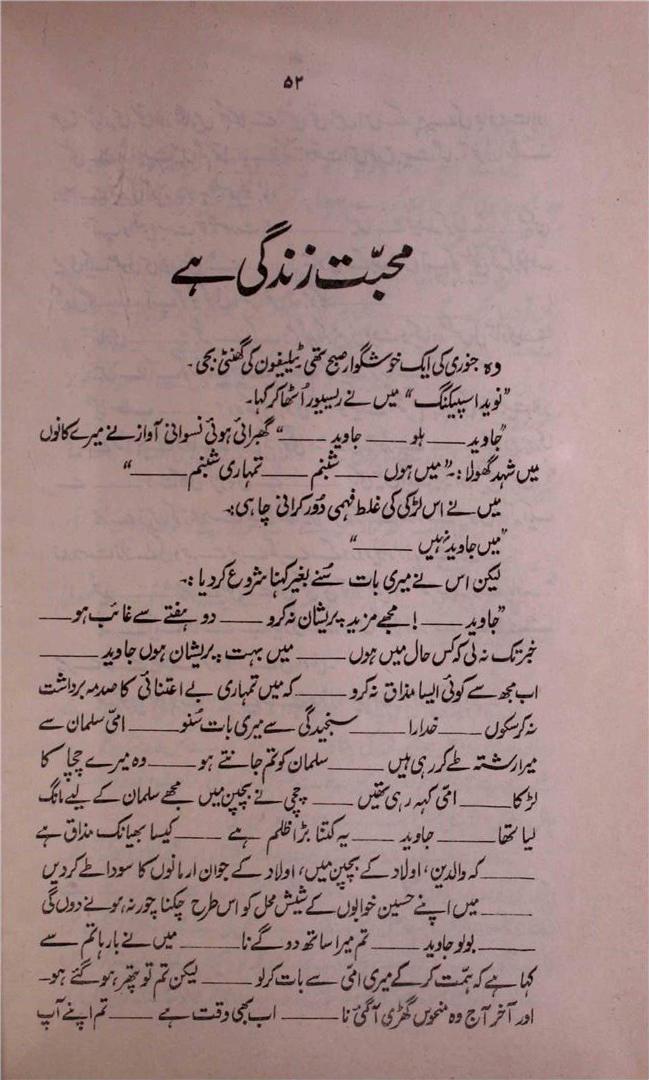 ۵۲
محبّت زندگی ہے
وہ جنوری کی ایک خوشگوار صبح تھی ٹیلیفون کی گھنٹی بجی۔
”نوید اسپیکنگ“ میں نے ریسیور اُٹھا کر کہا۔
”جاوید ــــ ہلو ــــ جاوید ــــ“ گھبرائی ہوئی نسوانی آواز نے میرے کانوں
میں شہد گھولا :۔ ”میں ہوں ــــ شبنم ــــ تمہاری شبنم ــــ“
میں نے اس لڑکی کی غلط فہمی دُور کرانی چاہی :۔
”میں جاوید نہیں ــــ“
لیکن اس نے میری بات سُنے بغیر کہنا شروع کر دیا :۔
”جاوید ــــ ! مجھے مزید پریشان نہ کرو ــــ دو ہفتے سے غائب ہو ــــ
خبر تک نہ لی کہ کس حال میں ہوں ــــ میں بہت پریشان ہوں جاوید ــــ
اب مجھ سے کوئی ایسا مذاق نہ کرو ــــ کہ میں تمہاری بے اعتنائی کا صدمہ برداشت
نہ کر سکوں ــــ خدارا ــــ سنجیدگی سے میری بات سُنو ــــ امّی سلمان سے
میرا رشتہ طے کر رہی ہیں ــــ سلمان کو تم جانتے ہو ــــ وہ میرے چچا کا
لڑکا ــــ امّی کہہ رہی تھیں ــــ چچی نے بچپن میں مجھے سلمان کے لیے مانگ
لیا تھا ــــ جاوید ــــ یہ کتنا بڑا ظلم ہے ــــ کیسا بھیانک مذاق ہے
ــــ کہ والدین، اولاد کے بچپن میں، اولاد کے جوان ارمانوں کا سودا طے کر دیں
ــــ میں اپنے حسین خوابوں کے شیش محل کو اس طرح چکنا چور نہ ہونے دوں گی
ــــ بولو جاوید ــــ تم میرا ساتھ دو گے نا ــــ میں نے بارہا تم سے
کہا ہے کہ ہمّت کر کے میری امّی سے بات کر لو ــــ لیکن تم تو پتھر ہو گئے ہو ــ
اور آخر آج وہ منحوس گھڑی آ گئی نا ــــ اب بھی وقت ہے ــــ تم اپنے آپ